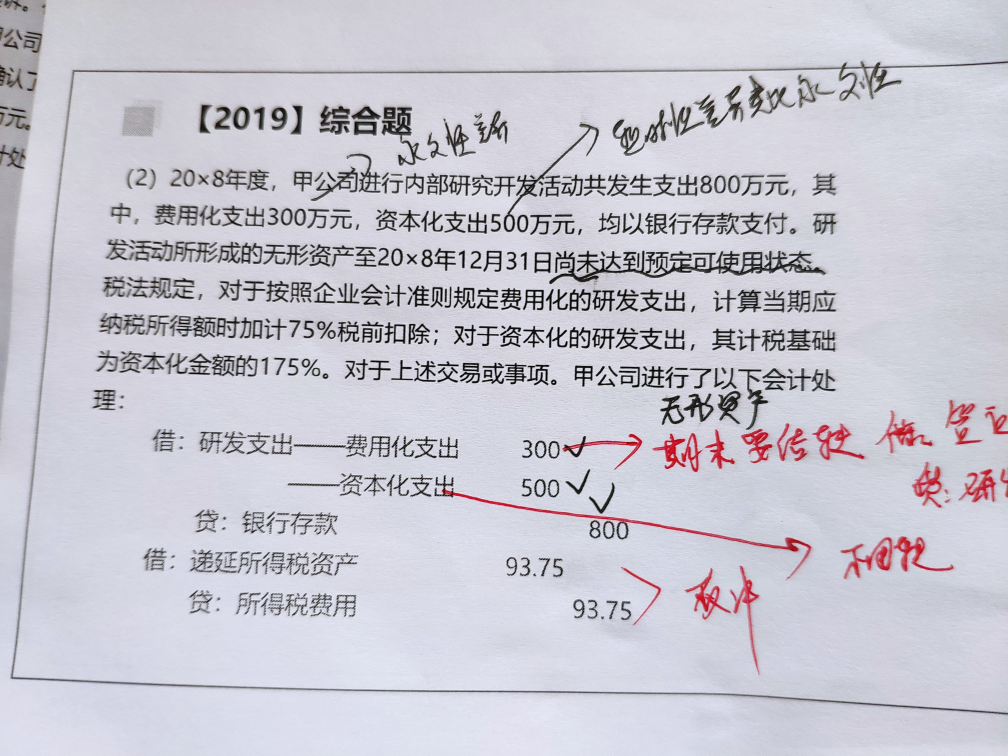 公司
确认了
万元。
计处
【2019】综合题
永久性差异
暂时性差异变成永久性
（2）20×8年度，甲公司进行内部研究开发活动共发生支出800万元，其
中，费用化支出300万元，资本化支出500万元，均以银行存款支付。研
发活动所形成的无形资产至20×8年12月31日尚未达到预定可使用状态。
税法规定，对于按照企业会计准则规定费用化的研发支出，计算当期应
纳税所得额时加计75%税前扣除；对于资本化的研发支出，其计税基础
为资本化金额的175%。对于上述交易或事项。甲公司进行了以下会计处
理：
无形资产
借：研发支出——费用化支出 300
期末要结转 借：管
贷：研
——资本化支出 500
贷：银行存款 800
不用
借：递延所得税资产 93.75
贷：所得税费用 93.75
反冲